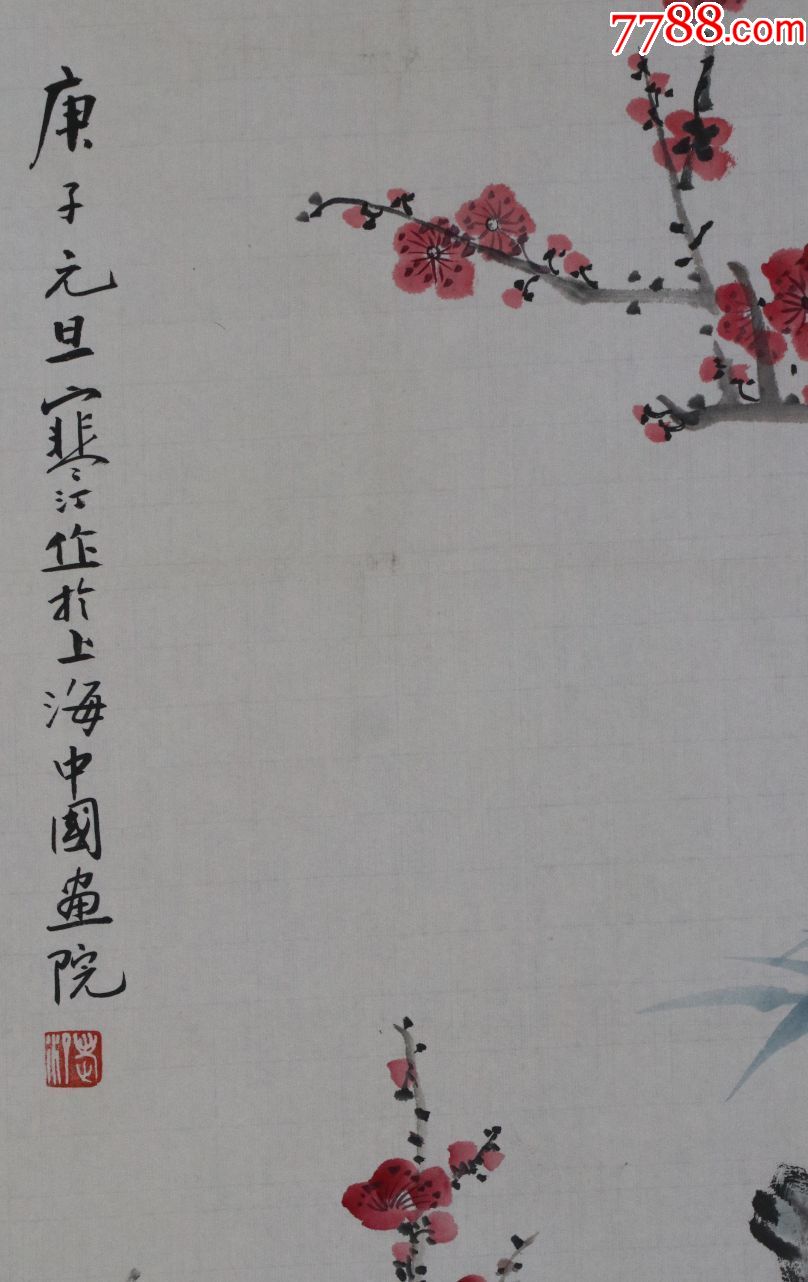 7788.com
庚子元旦寒汀作於上海中國畫院